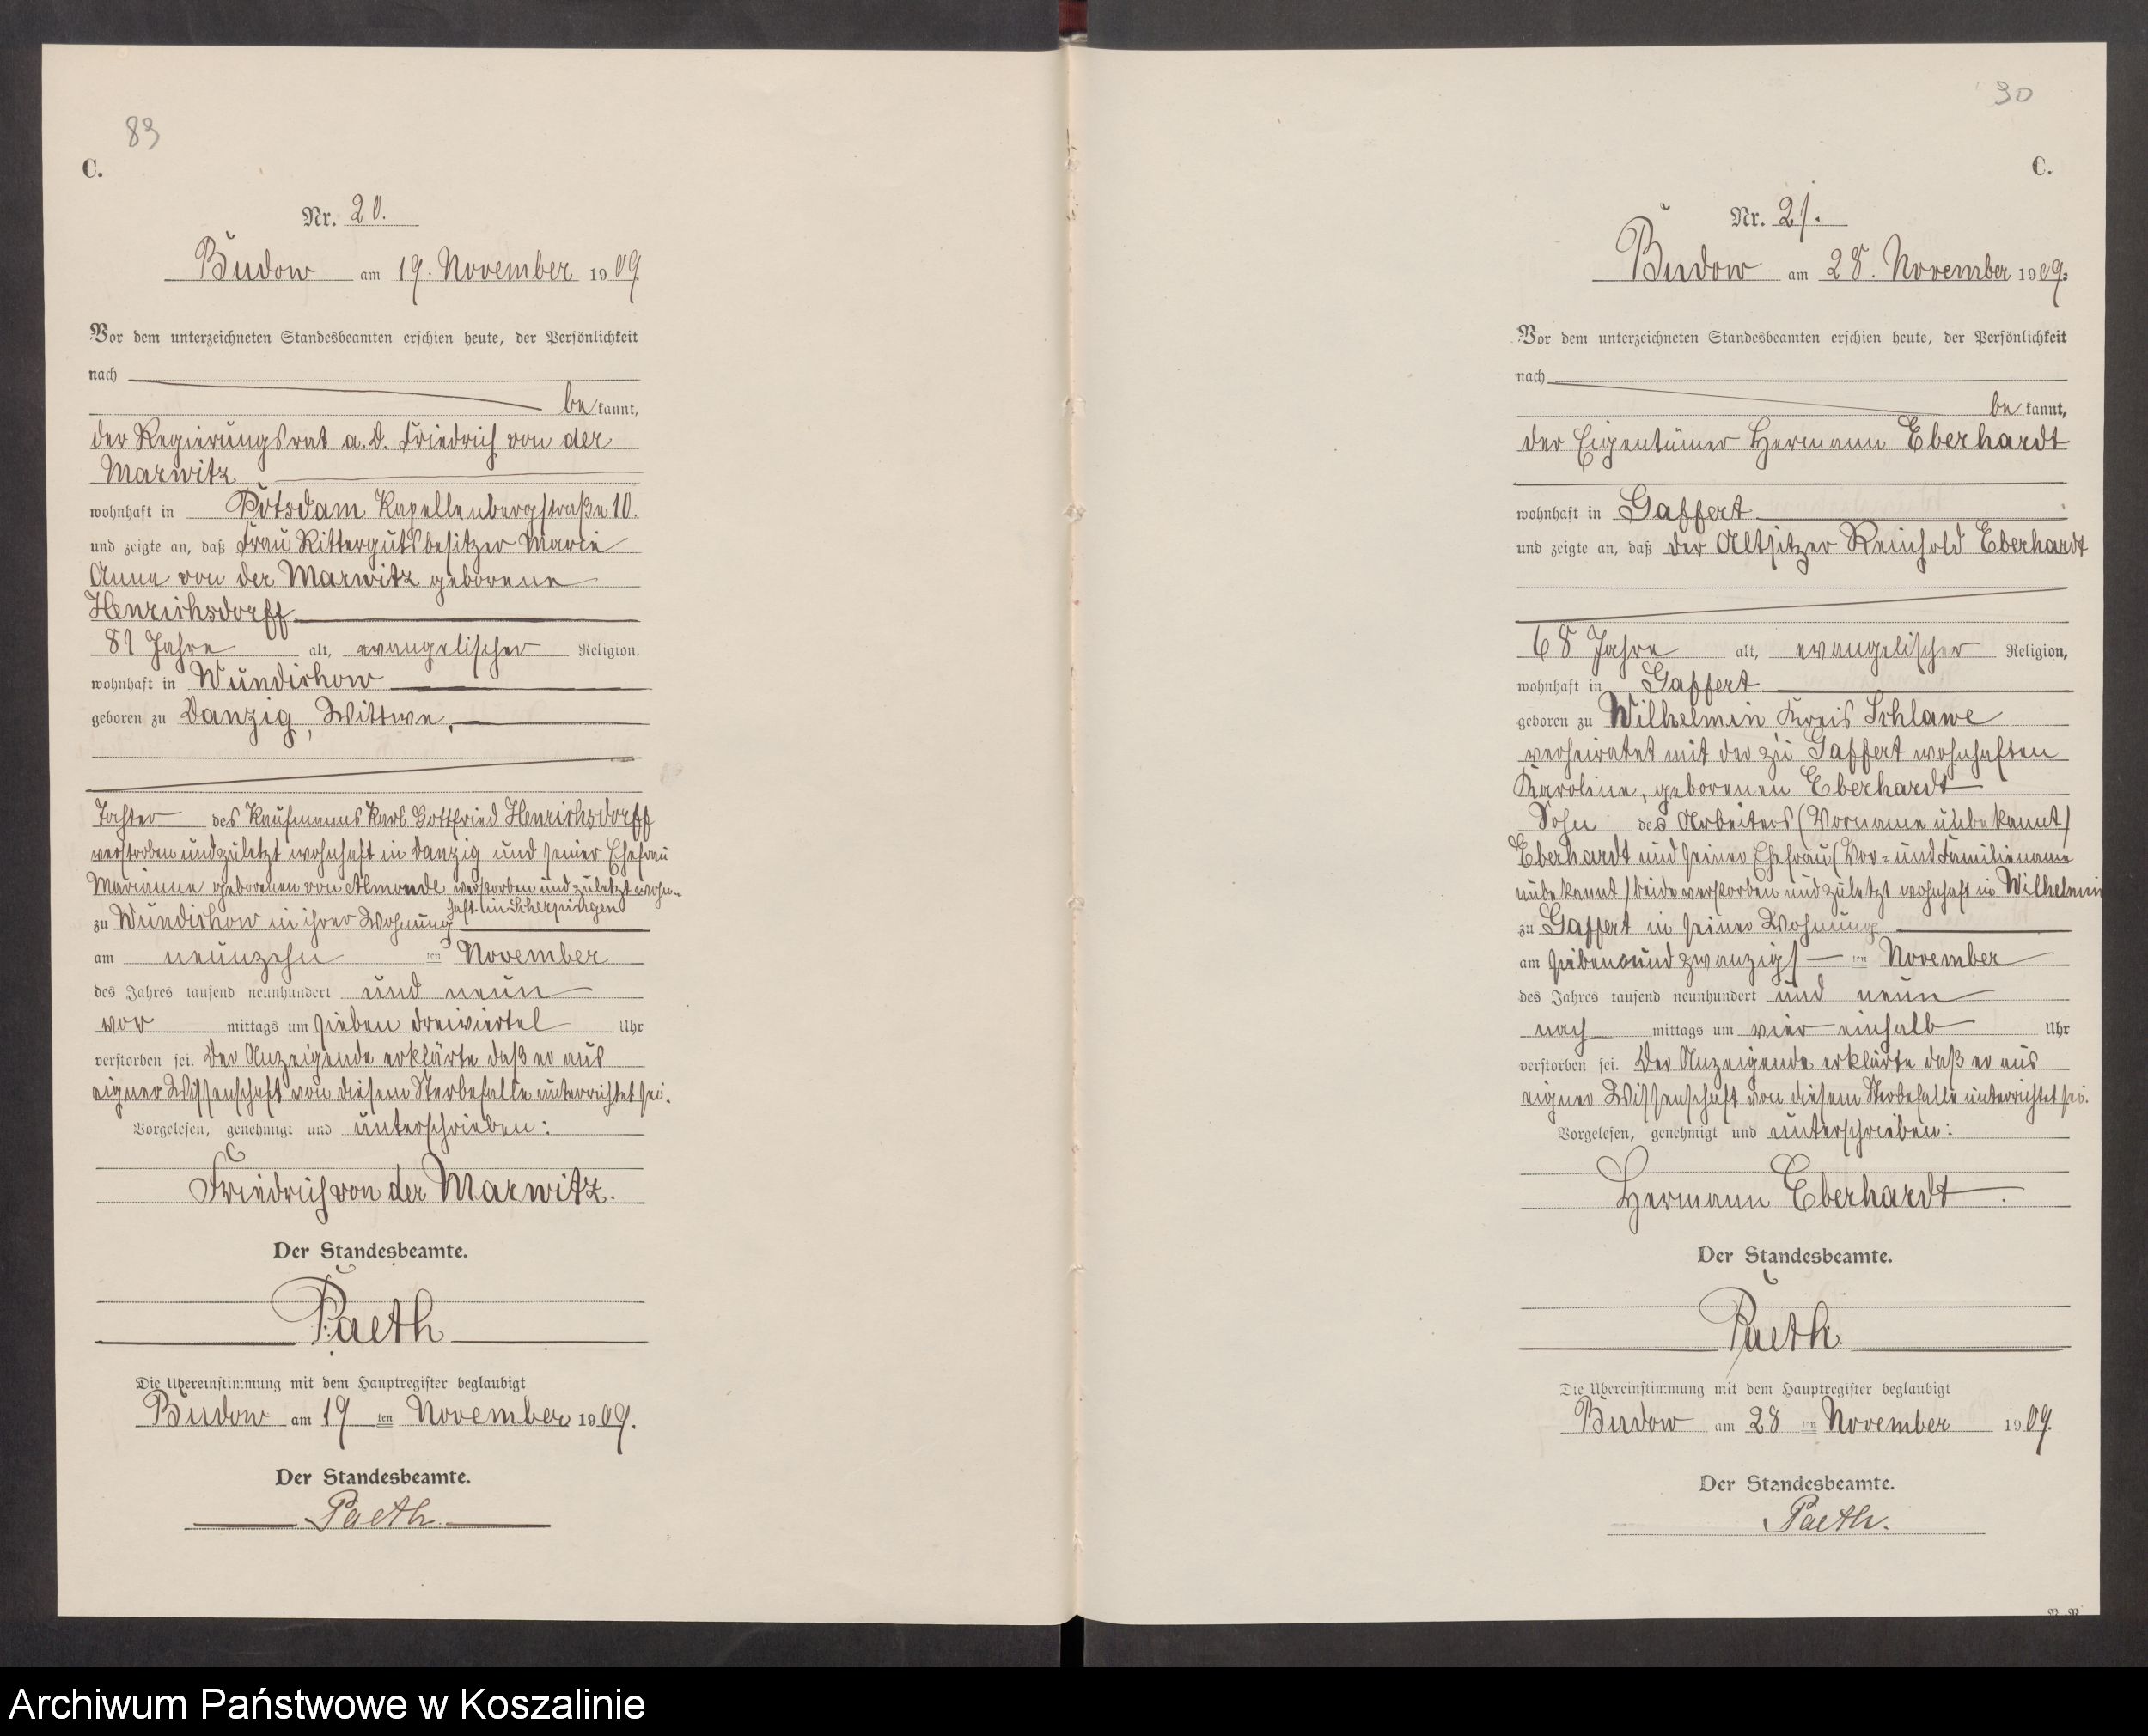 83
C.
Nr. 20.
Budow am 19. November 1909.
Vor dem unterzeichneten Standesbeamten erschien heute, der Persönlichkeit
nach
be kannt,
der Regierungsrat a. D. Friedrich von der
Marwitz
wohnhaft in Potsdam Kapellenbergstraße 10.
und zeigte an, daß Frau Rittergutsbesitzer Marie
Anna von der Marwitz geborene
Henrichsdorff
81 Jahre alt, evangelischer Religion.
wohnhaft in Wundichow
geboren zu Danzig, Wittwe,
Tochter des Kaufmanns Karl Gottfried Henrichsdorff
verstorben und zuletzt wohnhaft in Danzig und seiner Ehefrau
Marianne geborenen von Almonde verstorben und zuletzt wohn-
haft in Scherpingen
zu Wundichow in ihrer Wohnung
am neunzehn ten November
des Jahres tausend neunhundert und neun
vor mittags um sieben dreiviertel Uhr
verstorben sei. Der Anzeigende erklärte daß er aus
eigner Wissenschaft von diesem Sterbefalle unterrichtet sei.
Vorgelesen, genehmigt und unterschrieben:
Friedrich von der Marwitz.
Der Standesbeamte.
Paeth
Die Übereinstimmung mit dem Hauptregister beglaubigt
Budow am 19 ten November 1909.
Der Standesbeamte.
Paeth.
30
C.
Nr. 21.
Budow am 28. November 1909.
Vor dem unterzeichneten Standesbeamten erschien heute, der Persönlichkeit
nach
be kannt,
der Eigentümer Hermann Eberhardt
wohnhaft in Gaffert
und zeigte an, daß der Altsitzer Reinhold Eberhardt
68 Jahre alt, evangelischer Religion,
wohnhaft in Gaffert
geboren zu Wilhelmin, Kreis Schlawe
verheiratet mit der zu Gaffert wohnhaften
Karoline, geborenen Eberhardt
Sohn des Arbeiters (Vorname unbekannt)
Eberhardt und seiner Ehefrau (Vor- und Familienname
unbekannt) beide verstorben und zuletzt wohnhaft in Wilhelmin
zu Gaffert in seiner Wohnung
am siebenundzwanzigs ten November
des Jahres tausend neunhundert und neun
nach mittags um vier einhalb Uhr
verstorben sei. Der Anzeigende erklärte daß er aus
eigner Wissenschaft von diesem Sterbefalle unterrichtet sei.
Vorgelesen, genehmigt und unterschrieben:
Hermann Eberhardt.
Der Standesbeamte.
Paeth.
Die Übereinstimmung mit dem Hauptregister beglaubigt
Budow am 28 ten November 1909.
Der Standesbeamte.
Paeth.
Archiwum Państwowe w Koszalinie